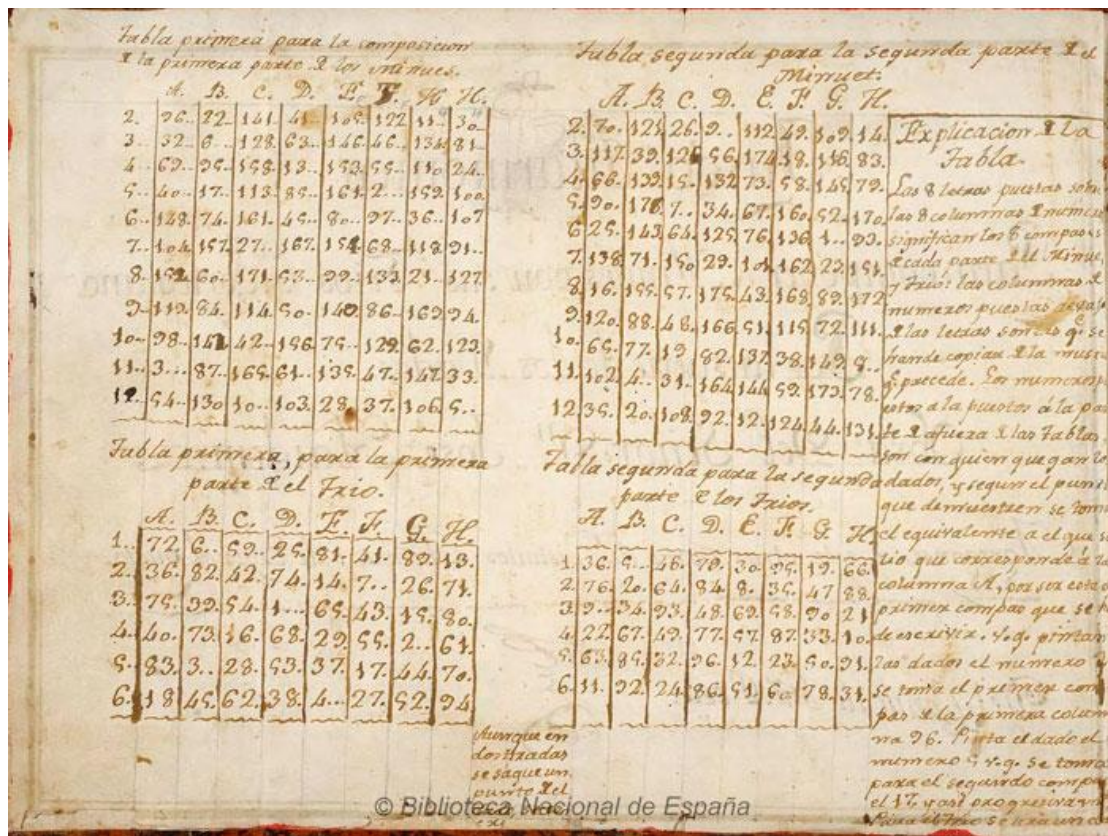 Tabla primera para la composicion
de la primera parte de los minues.
A. B. C. D. E. F. H H.
2. 96. 22. 141 41. 105. 122 11. 30
3. 32. 6. 128. 63. 146. 46. 134. 81
4 69. 95. 158. 13. 153. 55. 110 24.
5. 40. 17. 113. 85. 161. 2. 159. 100.
6. 148. 74. 161. 45. 80. 97. 36. 107
7. 104. 157. 27. 167. 154 68. 118. 91.
8. 152 60. 171. 53. 99. 133 21. 127
9. 119. 84. 114. 50. 140 86. 169. 94.
10 98. 142 42. 156. 75. 129. 62. 123.
11. 3. 87. 165. 61. 135. 47. 147. 33.
12. 54. 130 10. 103. 28. 37. 106. 5.
Tabla primera, para la primera
parte de el Trio.
A. B. C. D. E. F. G. H.
1. 72. 6. 59. 25. 81. 41. 89. 13.
2. 36. 82. 42. 74. 14. 7. 26. 71.
3. 75. 39. 54. 1. 65. 43. 15. 80.
4. 40. 73. 16. 68. 29. 55. 2. 61.
5. 83. 3. 28. 53. 37. 17. 44. 70.
6. 18 45. 62. 38. 4. 27. 52. 94.
Aunque en
dos tiradas
se saque un
punto de el
Tabla segunda para la segunda parte de el
Minuet.
A. B. C. D. E. F. G. H.
2. 70. 121. 26. 9. 112. 49. 109. 14.
3. 117. 39. 126 56. 174. 18. 116. 83.
4. 66. 139. 15. 132 73. 58. 145. 79.
5. 90. 176. 7. 34. 67. 160. 52. 170.
6 25. 143. 64. 125. 76. 136. 1. 93.
7. 138. 71. 150. 29. 101. 162. 23. 151.
8. 16. 155. 57. 175. 43. 168. 89. 172
9. 120. 88. 48. 166. 51. 115. 72. 111.
10. 65. 77. 19 82. 137. 38. 149. 8.
11. 102. 4. 31. 164. 144. 59. 173. 78.
12. 35. 20. 108. 92. 12. 124. 44. 131.
Tabla segunda para la segunda
parte de los Trios.
A. B. C. D. E. F. G. H.
1. 36. 5. 46. 79. 30. 95. 19. 66.
2. 76. 20. 64. 84. 8. 35. 47 88.
3. 9. 34. 93. 48. 69. 58. 90. 21
4. 22. 67. 49. 77. 57. 87. 33. 10.
5. 63. 85. 32. 96. 12. 23. 50. 91.
6. 11. 92. 24. 86. 51. 60. 78. 31.
Explicacion de la
Tabla.
Las 8 letras puestas sobre
las 8 columnas de numeros
significan los 8 compases
de cada parte de el Minue,
y Trio: las columnas de
numeros puestas debajo
de las letras son las q. se
han de copiar de la musica
q. precede. Los numeros
a la puestos á la par
te de afuera de las Tablas
son con quien que gan los
dados, y segun el punto
que demuestren se toma
el equivalente a el que s
lio que corresponde á la
columna A, por ser esta
primer compas que se
de escrivir. v.g. pintan
los dados el numero
se toma el primer com
pas de la primera colum
na 96. Pinta el dado el
numero 5 v.g. se toma
para el segundo compas
el 17, y asi progresivam
© Biblioteca Nacional de España